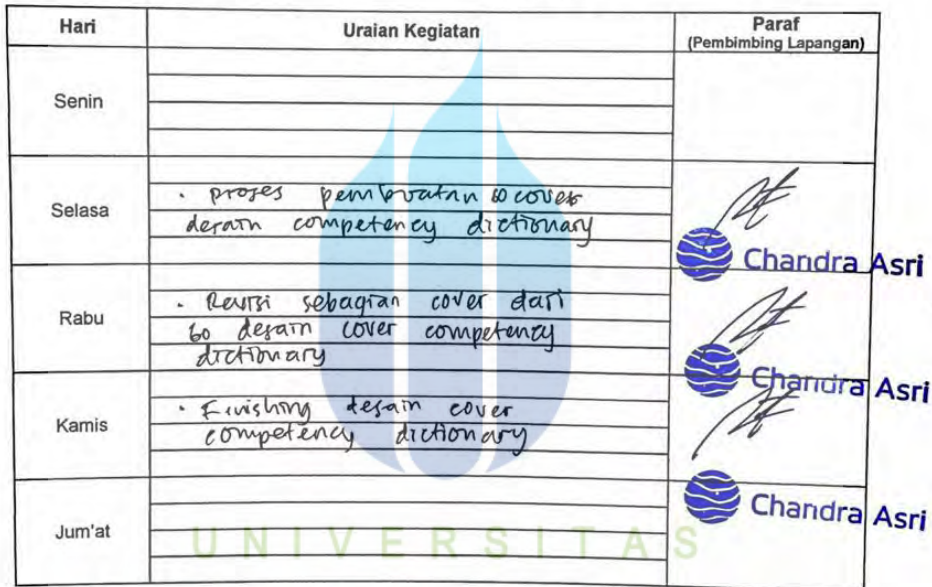 Hari
Uraian Kegiatan
Paraf
(Pembimbing Lapangan)
Senin
Selasa
· proses pembuatan 60 cover
desain competency dictionary
Chandra Asri
Rabu
· Revisi sebagian cover dari
60 desain cover competency
dictionary
Chandra Asri
Kamis
· Finishing desain cover
competency dictionary
Chandra Asri
Jum'at
UNIVERSITAS